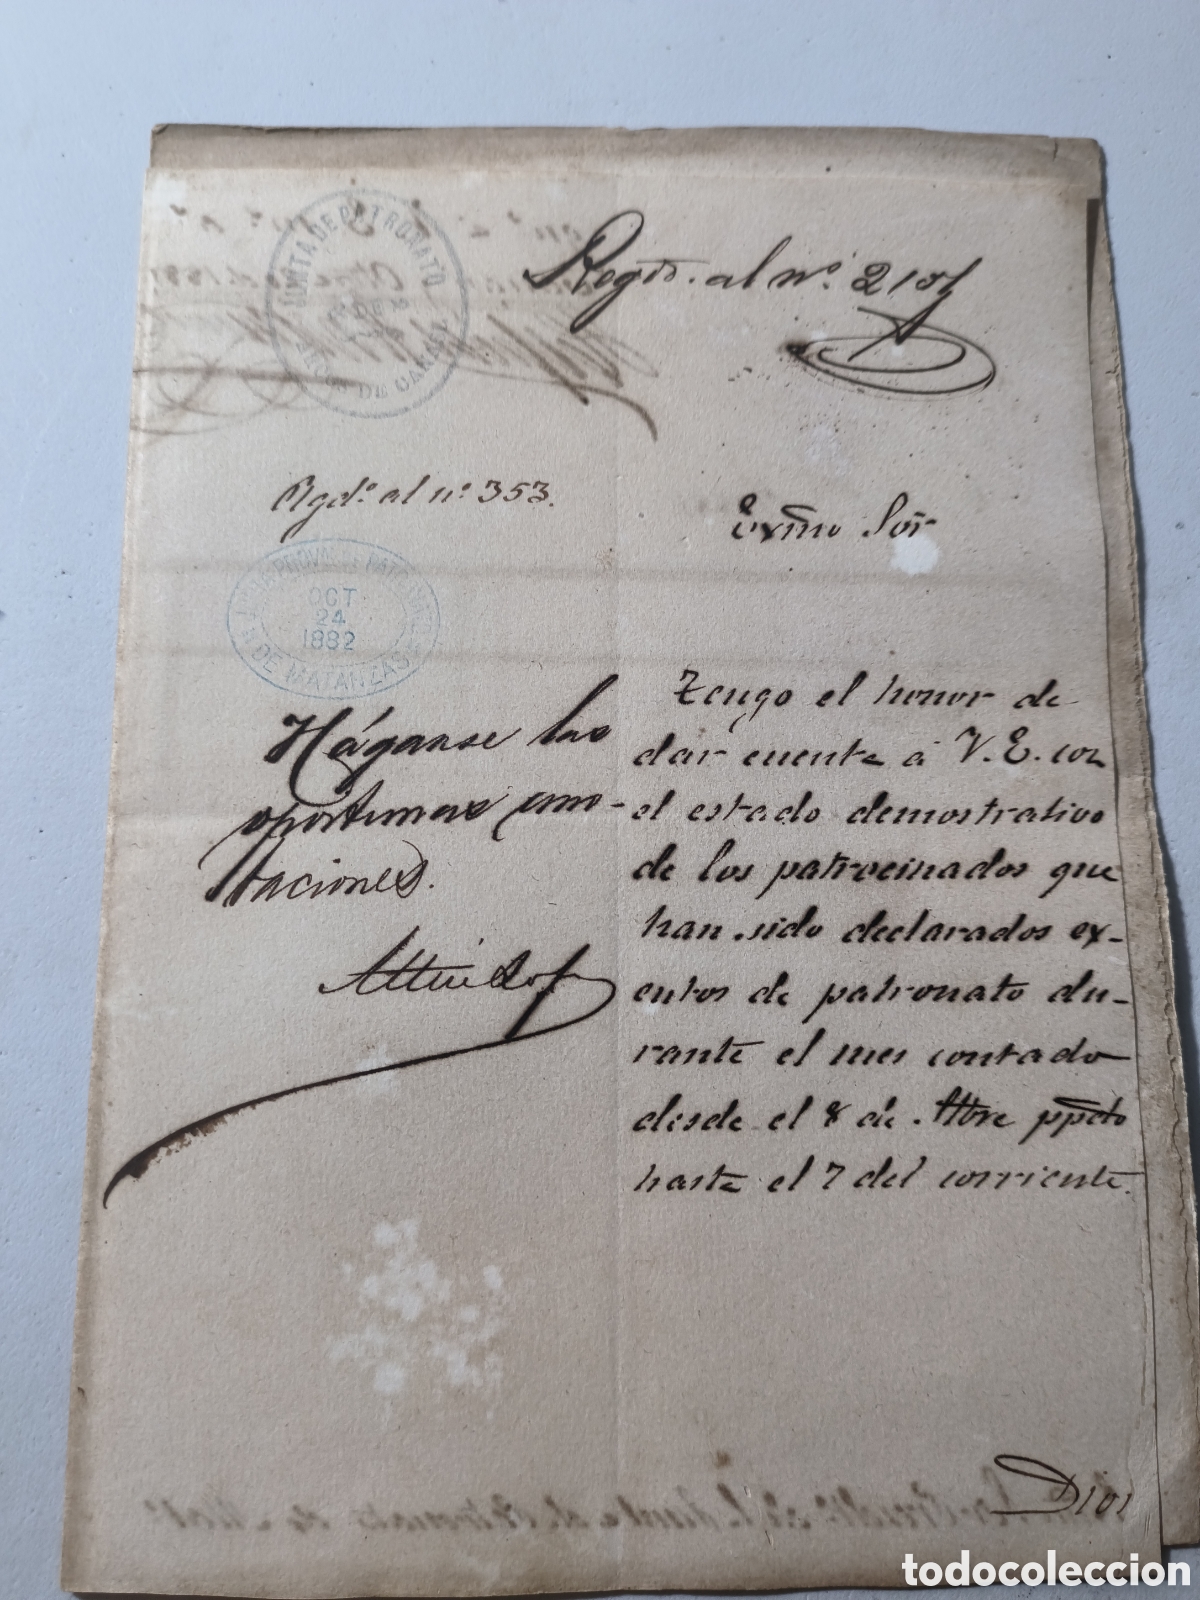 JUNTA DE PATRONATO
Regdo. al nº. 2101
Rgdº. al nº. 353.
Exmo Sor
OCT
24
1882
DE MATANZAS
Háganse las
oportunas ano-
taciones.
Tengo el honor de
dar cuenta á V. E. con
el estado demostrativo
de los patrocinados que
han sido declarados ex-
entos de patronato du-
rante el mes contado
desde el 8 de ppdo
hasta el 7 del corriente.
Dios
todocoleccion